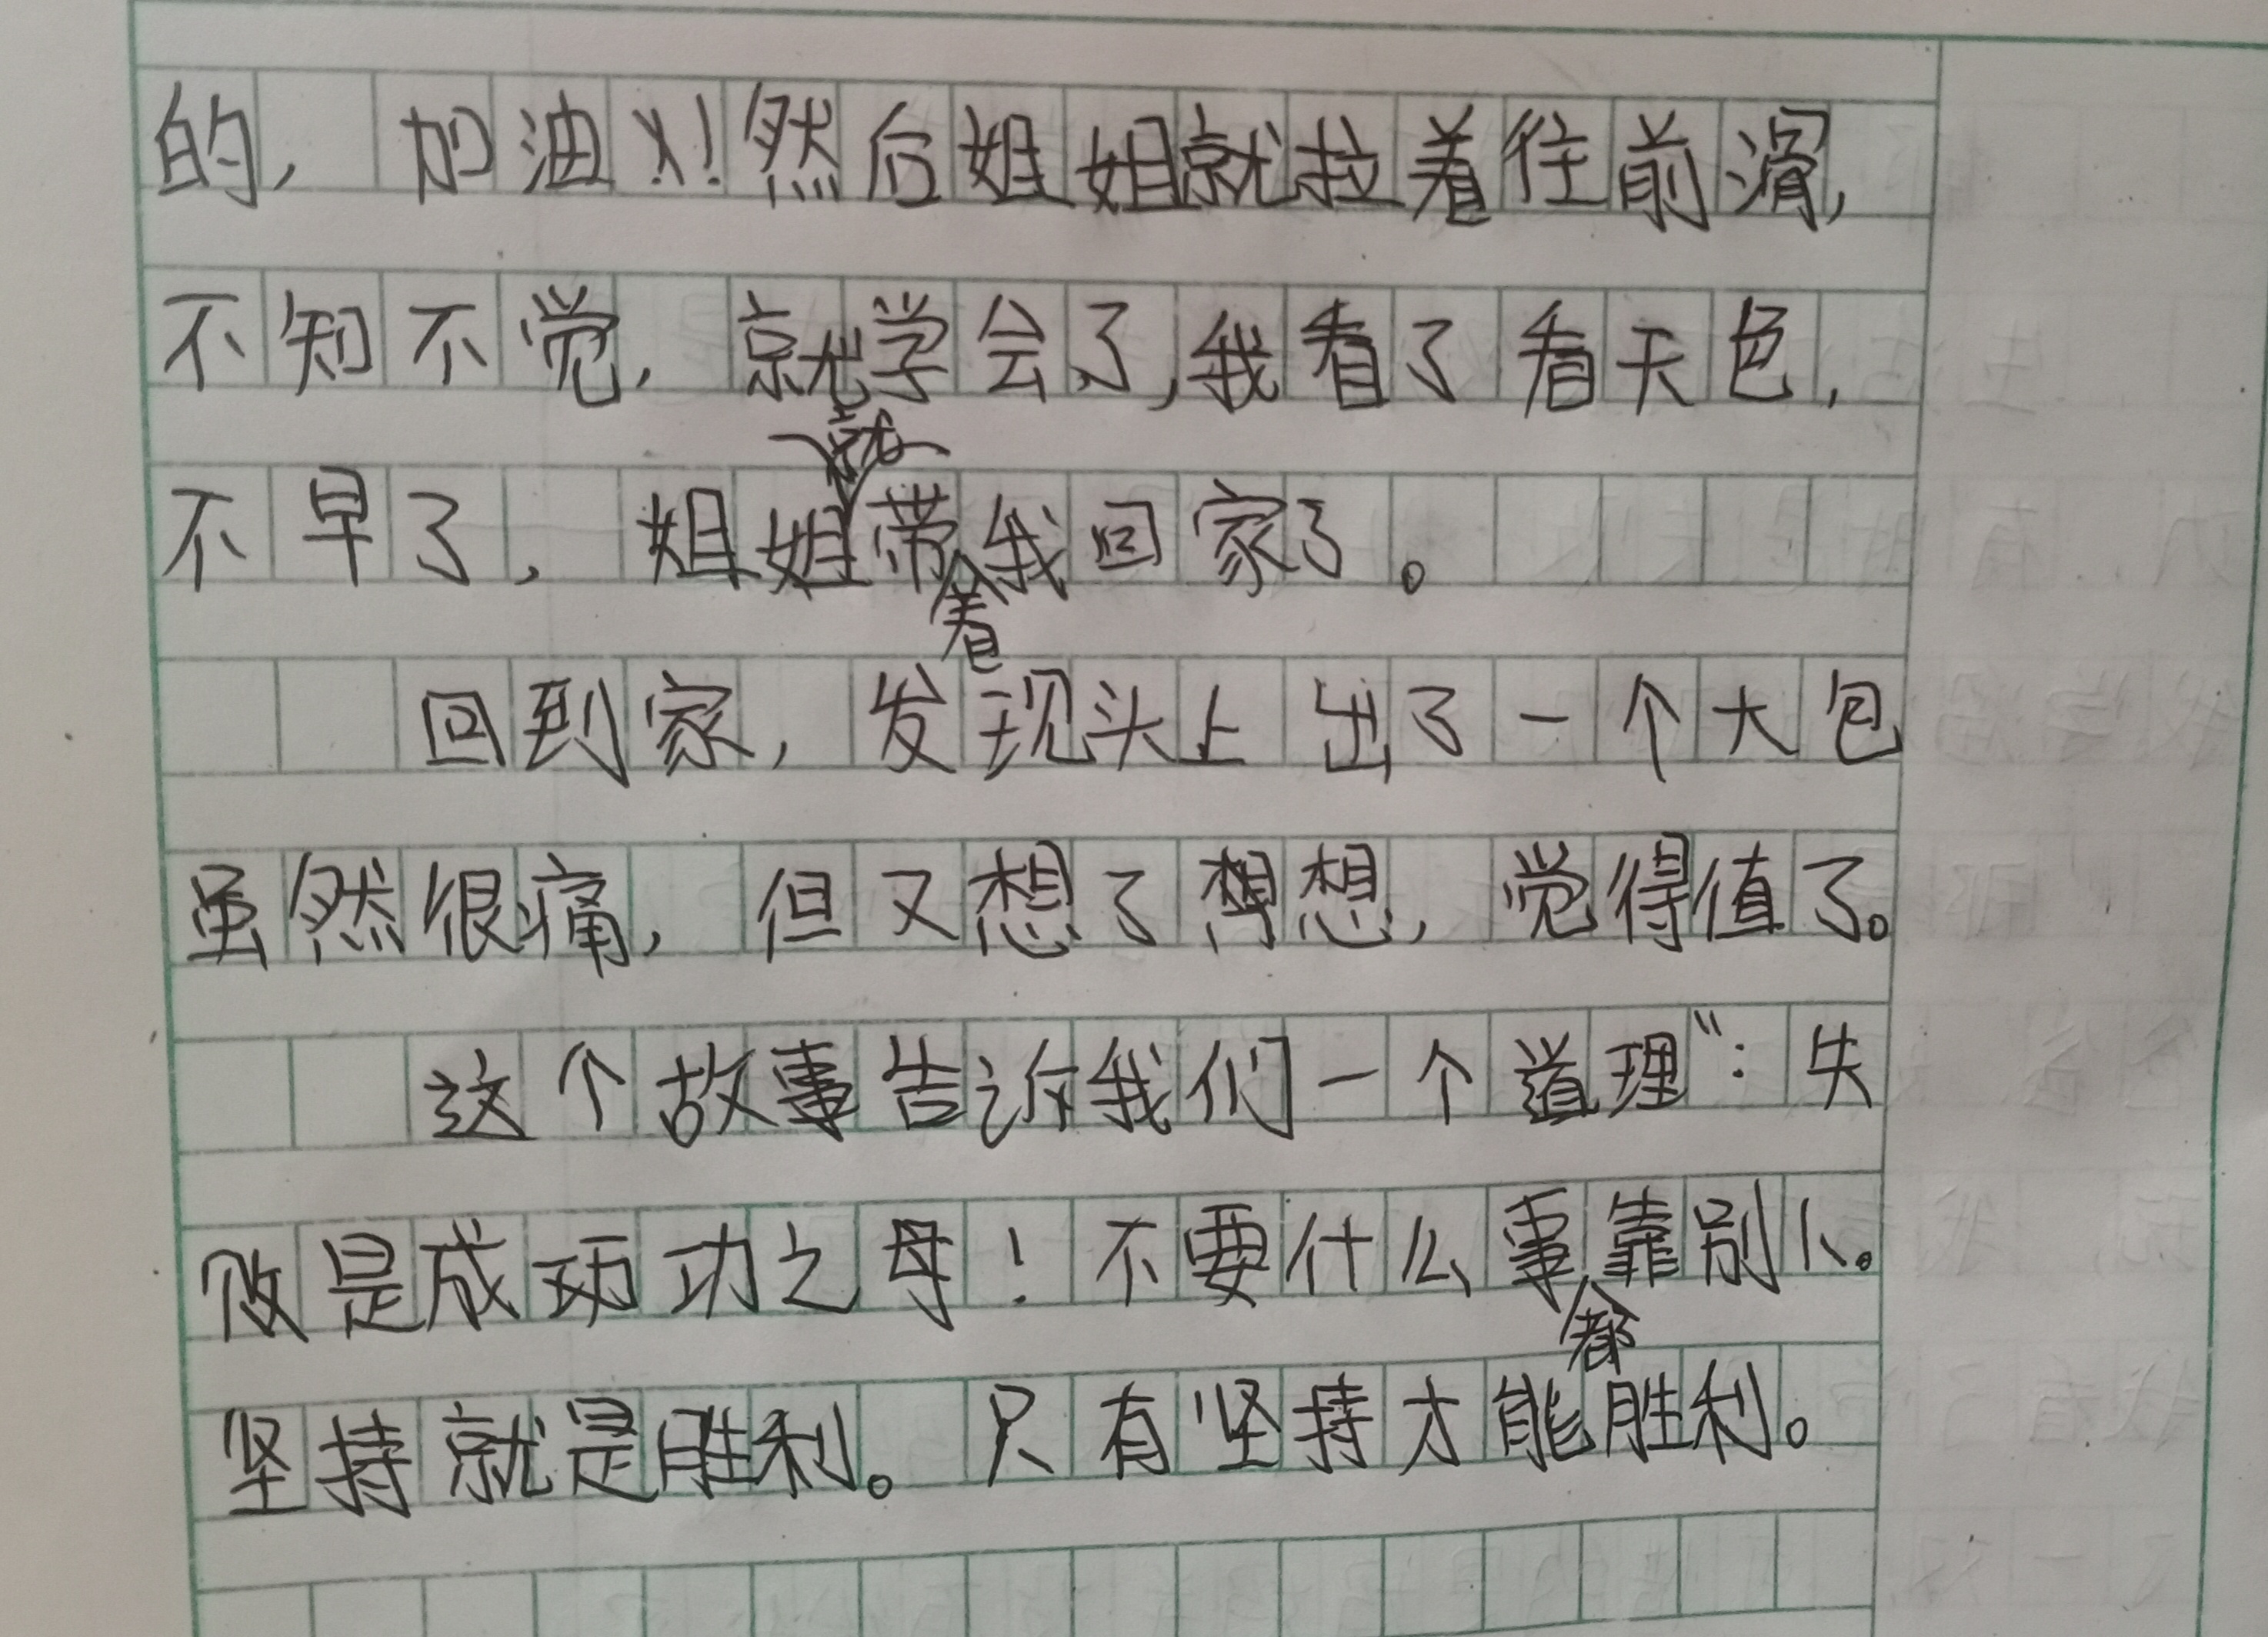 的，加油！然后姐姐就拉着往前滑，
不知不觉，就学会了，我看了看天色，
不早了，姐姐就带着我回家了。
回到家，发现头上出了一个大包
虽然很痛，但又想了想，觉得值了。
这个故事告诉我们一个道理“：失
败是成功之母！不要什么事都靠别人。
坚持就是胜利。只有坚持才能胜利。